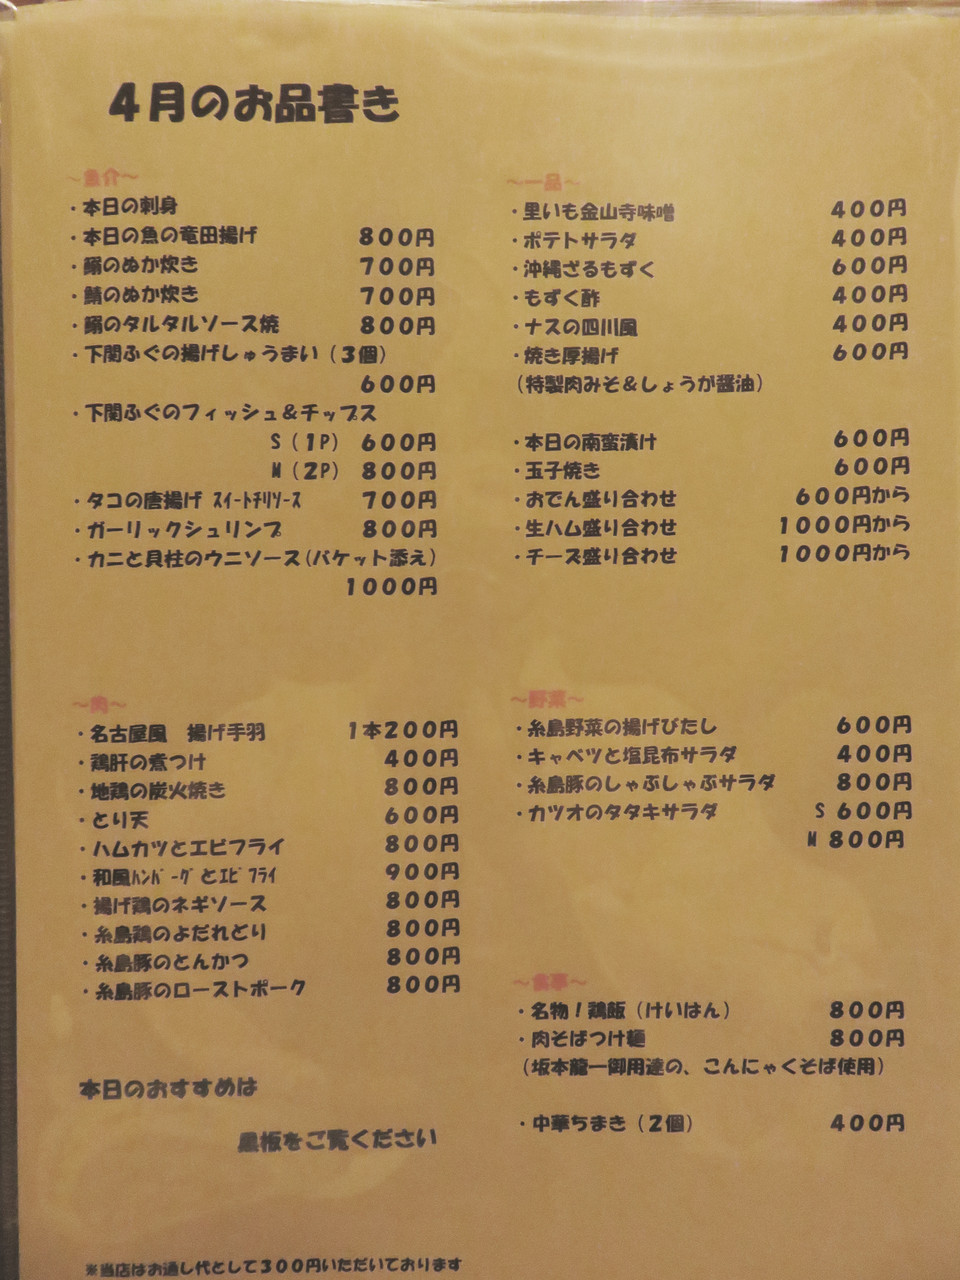 ４月のお品書き
～魚介～
・本日の刺身
・本日の魚の竜田揚げ ８００円
・鰯のぬか炊き ７００円
・鯖のぬか炊き ７００円
・鰯のタルタルソース焼 ８００円
・下関ふぐの揚げしゅうまい（３個）
６００円
・下関ふぐのフィッシュ＆チップス
Ｓ（１Ｐ） ６００円
Ｍ（２Ｐ） ８００円
・タコの唐揚げ ｽｲｰﾄﾁﾘｿｰｽ ７００円
・ガーリックシュリンプ ８００円
・カニと貝柱のウニソース（バケット添え）
１０００円
～肉～
・名古屋風　揚げ手羽 １本２００円
・鶏肝の煮つけ ４００円
・地鶏の炭火焼き ８００円
・とり天 ６００円
・ハムカツとエビフライ ８００円
・和風ﾊﾝﾊﾞｰｸﾞとｴﾋﾞﾌﾗｲ ９００円
・揚げ鶏のネギソース ８００円
・糸島鶏のよだれどり ８００円
・糸島豚のとんかつ ８００円
・糸島豚のローストポーク ８００円
本日のおすすめは
黒板をご覧ください
※当店はお通し代として３００円いただいております
～一品～
・里いも金山寺味噌 ４００円
・ポテトサラダ ４００円
・沖縄ざるもずく ６００円
・もずく酢 ４００円
・ナスの四川風 ４００円
・焼き厚揚げ ６００円
（特製肉みそ＆しょうが醤油）
・本日の南蛮漬け ６００円
・玉子焼き ６００円
・おでん盛り合わせ ６００円から
・生ハム盛り合わせ １０００円から
・チーズ盛り合わせ １０００円から
～野菜～
・糸島野菜の揚げびたし ６００円
・キャベツと塩昆布サラダ ４００円
・糸島豚のしゃぶしゃぶサラダ ８００円
・カツオのタタキサラダ Ｓ ６００円
Ｍ ８００円
～食事～
・名物！鶏飯（けいはん） ８００円
・肉そばつけ麺 ８００円
（坂本龍一御用達の、こんにゃくそば使用）
・中華ちまき（２個） ４００円